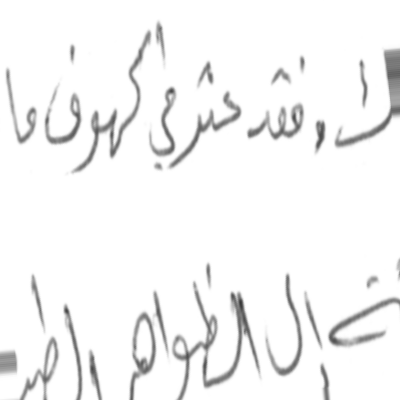 ك، فقد عثر في كهوف ما
ئة إلى الظواهر الطبيـ